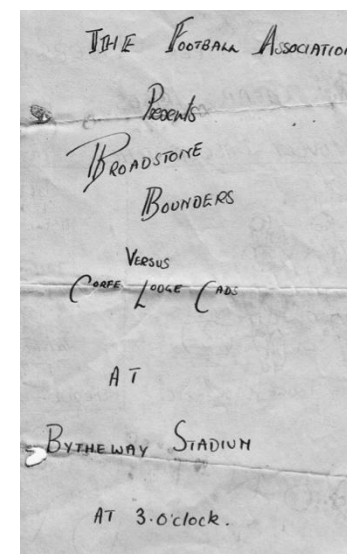 THE FOOTBALL ASSOCIATION
Presents
BROADSTONE
BOUNDERS
VERSUS
CORFE LODGE CADS
AT
BYTHEWAY STADIUM
AT 3.O'clock.